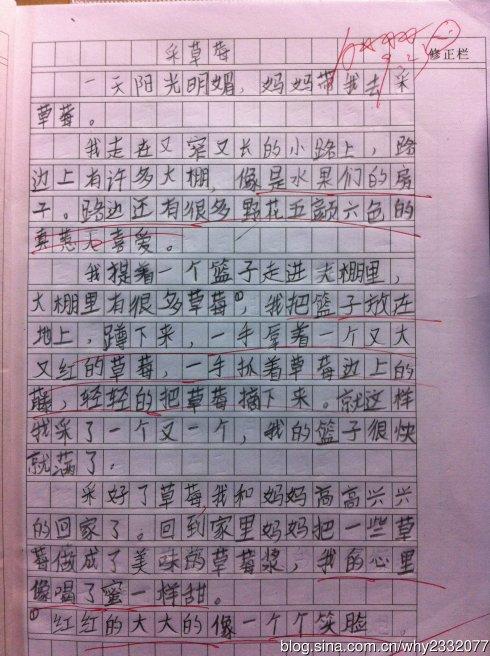 采草莓
修正栏
一天阳光明媚，妈妈带我去采
草莓。
我走在又窄又长的小路上，路
边上有许多大棚，像是水果们的房
子。路边还有很多野花五颜六色的
真惹人喜爱。
我提着一个篮子走进大棚里，
大棚里有很多草莓①，我把篮子放在
地上，蹲下来，一手拿着一个又大
又红的草莓，一手抓着草莓边上的
藤，轻轻的把草莓摘下来。就这样
我采了一个又一个，我的篮子很快
就满了。
采好了草莓，我和妈妈高高兴兴
的回家了。回到家里妈妈把一些草
莓做成了美味的草莓浆，我的心里
像喝了蜜一样甜。
①红红的大大的像一个个笑脸
blog.sina.com.cn/why2332077